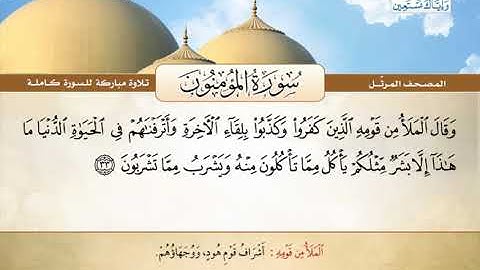 وَإِيَّاكَ نَسْتَعِينُ
المصحف المرتّل
سُورَةُ المُؤْمِنُونَ
تلاوة مباركة للسورة كاملة
وَقَالَ ٱلْمَلَأُ مِن قَوْمِهِ ٱلَّذِينَ كَفَرُوا۟ وَكَذَّبُوا۟ بِلِقَآءِ ٱلْـَٔاخِرَةِ وَأَتْرَفْنَـٰهُمْ فِى ٱلْحَيَوٰةِ ٱلدُّنْيَا مَا
هَـٰذَآ إِلَّا بَشَرٌ مِّثْلُكُمْ يَأْكُلُ مِمَّا تَأْكُلُونَ مِنْهُ وَيَشْرَبُ مِمَّا تَشْرَبُونَ ٣٣
المَلَأُ مِن قَوْمِهِ : أَشْرَافُ قَوْمِ هُودٍ، وَوُجَهَاؤُهُمْ.